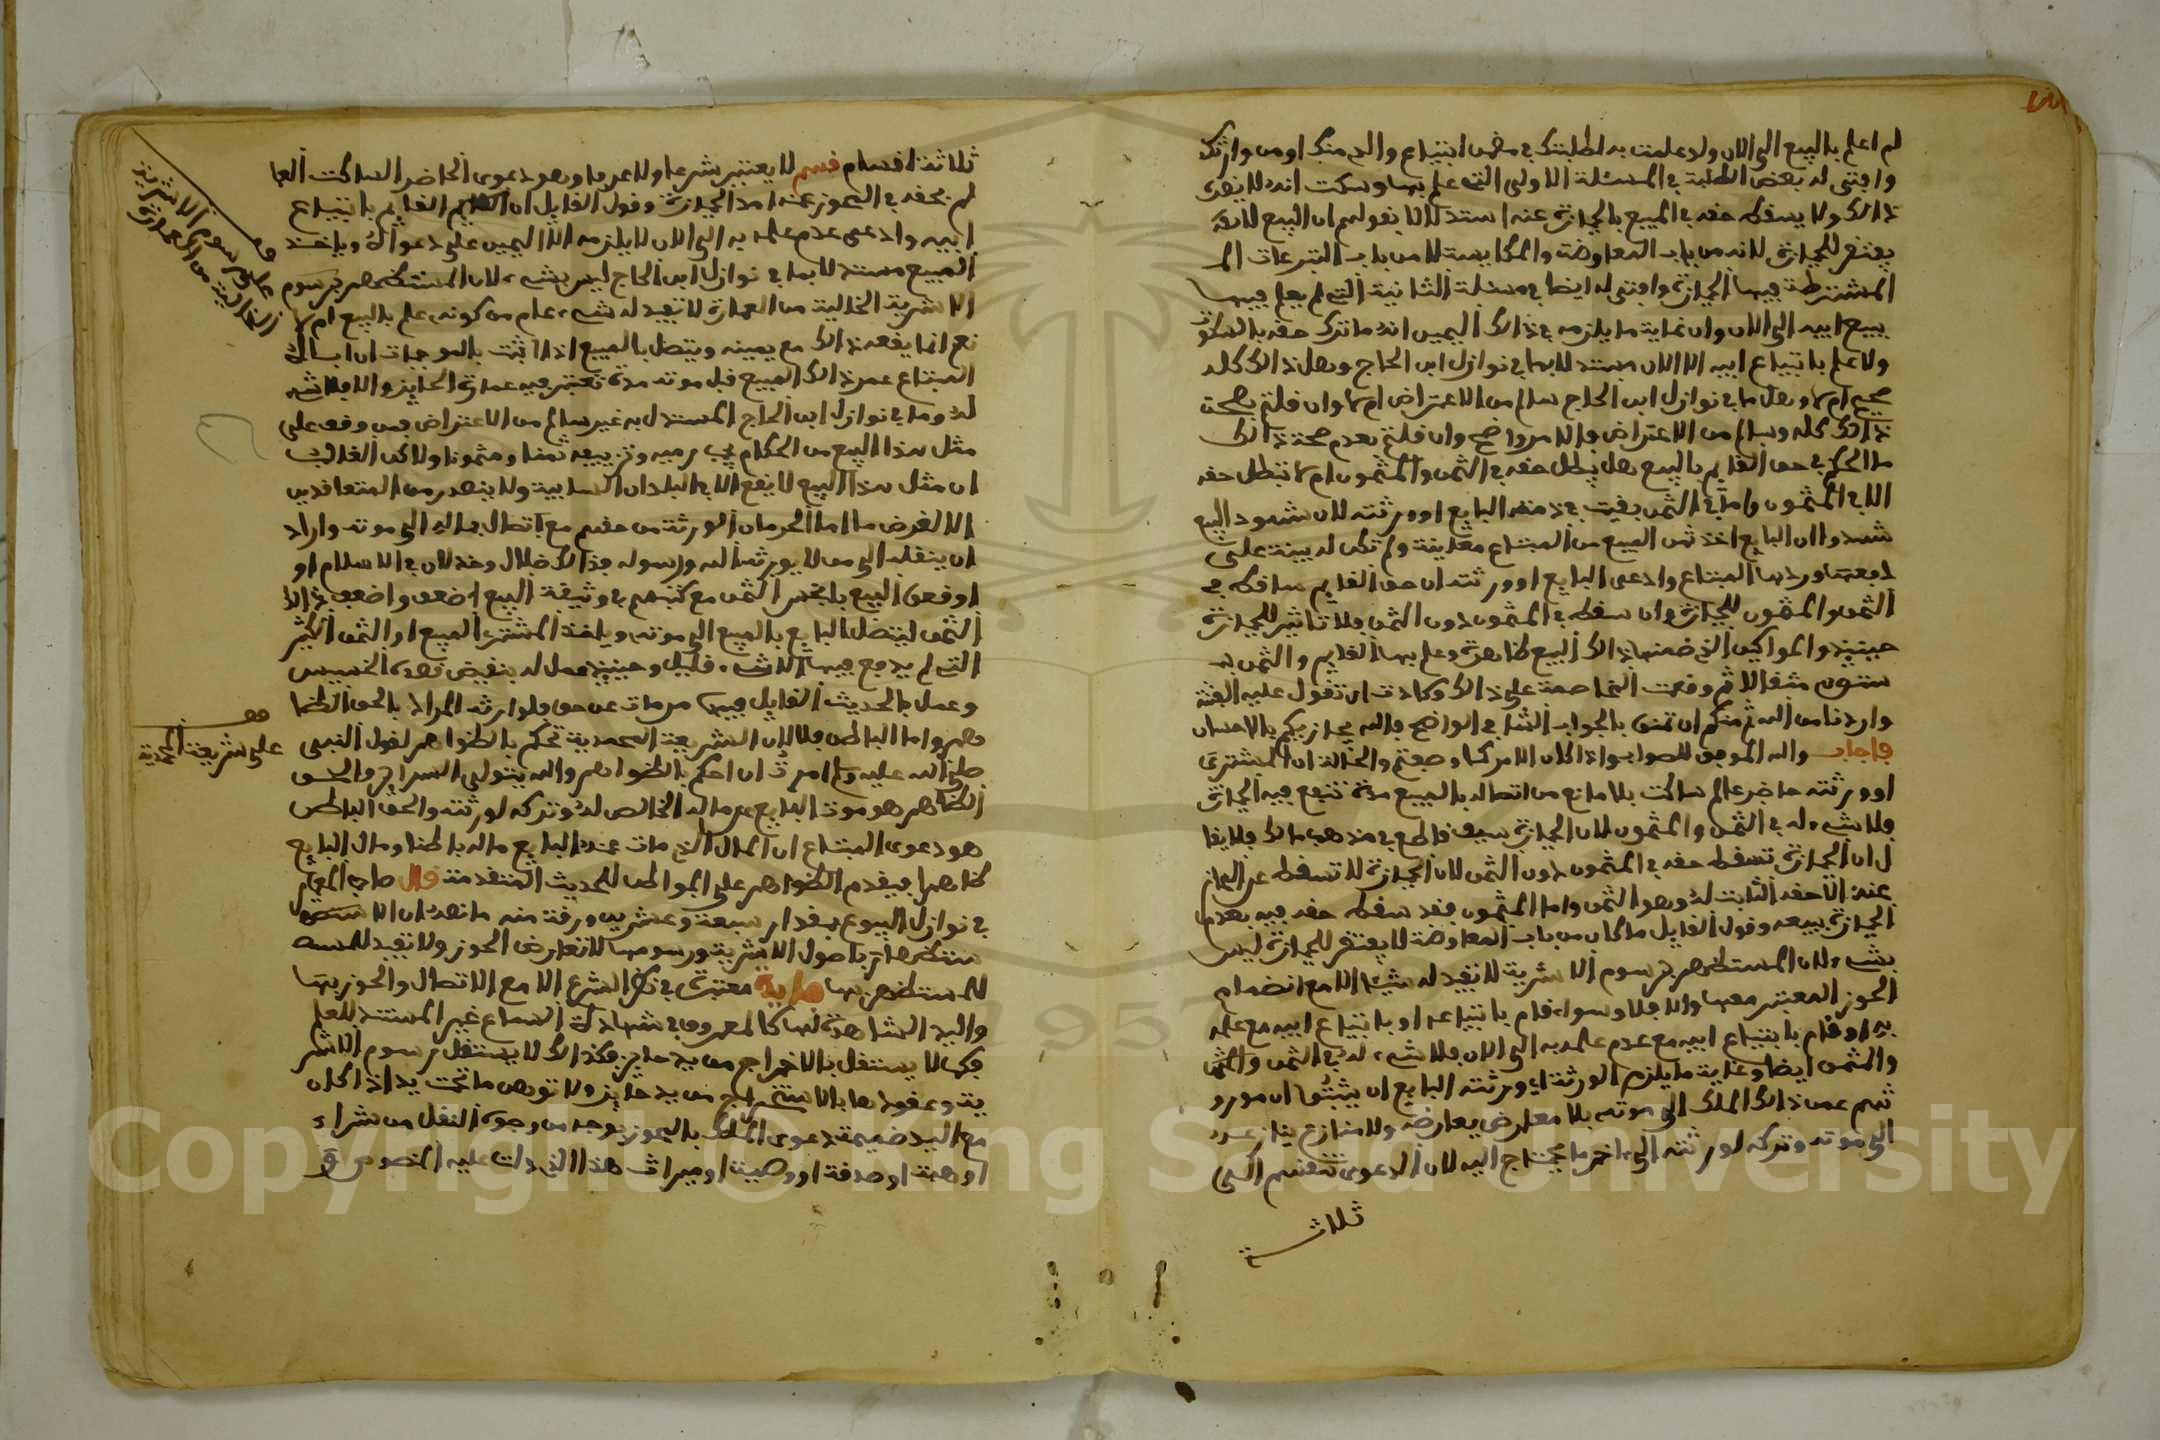 لم اعلم بالبيع الى الان ولو علمت به لطلبتك في مضمن ابتياع والدي منك او من وارثك
وافتى له بعض الطلبة في المسئلة الاولى التي علم بها وسكت انه لا يضره
ذالك ولا يسقط حقه في المبيع بالحيازة عنه استدلالا بقولهم ان البيع لا
يفتقر للحيازة لانه من باب المعاوضة والمكايسة لا من باب التبرعات
المشترطة فيها الحيازة وافتى له ايضا في مسئلة الثانية التي لم يعلم فيها
ببيع ابيه الى الان وان غاية ما يلزمه في ذالك اليمين انه ما ترك حقه بالسكوت
ولا علم بابتياع ابيه الا الان مستدلا بما في نوازل ابن الحاج وهل ذالك كله
صحيح ام لا وهل ما في نوازل ابن الحاج سالم من الاعتراض ام لا وان قلتم بصحة
ذالك كله وسالم من الاعتراض فالامر واضح وان قلتم بعدم صحة ذالك
ما الحكم في حق القايم بالبيع هل يبطل حقه في الثمن والمثمون ام لا تبطل حقه
الا في المثمون واما في الثمن بقيت في ذمة البايع او ورثته لان شهود البيع
شهدوا ان البايع اخذ ثمن المبيع من المبتاع معاينة ولم تكن له بينة على
دفعها وردها المبتاع وادعى البايع او ورثته ان حق القايم ساقط في
الثمن والمثمون للحيازة وان سقط في المثمون دون الثمن فلا تاثير للحيازة
حينيذ والمواكيس التي ضمنها ذالك البيع ظاهرة وعلم بها القايم والثمن له
ستون مثقالا ثم وقعت المخاصمة على ذالك وكادت ان تؤل عليه الفتنة
واردنا من الله ثم منكم ان تمنن بالجواب الشافي الواضح والله يجازيكم بالاحسان
فاجاب والله الموفق للصواب اذا كان الامر كما وصفتم والحالة ان المشتري
او ورثته حاضر عالم ساكت بلا مانع من اتصاله بالمبيع مدة تنفع فيه الحيازة
فلا شيء له في الثمن والمثمون لان الحيازة سيف قاطع في مذهب مالك فلا يقا
ل ان الحيازة تسقط حقه في المثمون دون الثمن لان الحيازة لا تسقط عن المحاز
عنه الا حقه الثابت له وهو الثمن واما المثمون فقد سقط حقه فيه بعدم
الحيازة ببيعه وقول القايل ما كان من باب المعاوضة لا يفتقر للحيازة ليس
بشيء لان المستظهر برسوم الاشرية لا تفيد له شيئا الا مع انضمام
الحوز المعتبر معها والا فلا وسواء قام بابتياعه او بابتياع ابيه مع علمه
به او قام بابتياع ابيه مع عدم علمه به الى الان فلا شيء له في الثمن والمثمن
والمثمن ايضا وغاية ما يلزم الورثة اي ورثة البايع ان يثبتوا ان مورو
ثهم عمن ذالك الملك الى موته بلا معارض يعارضه ولا منازع ينازعه
الى موته وتركه لورثته الى ءاخر ما يحتاج اليه لان الدعوى تنقسم الى
ثلاثة
ثلاثة اقسام قسم لا يعتبر شرعا ولا عرفا وهو دعوى الحاضر الساكت العا
لم بحقه في المحوز عنه امد الحيازة وقول القايل ان القايم بابتياع
ابيه وادعى عدم علمه به الى الان لا يلزمه الا اليمين على دعواه وياخذ
المبيع مستدلا بما في نوازل ابن الحاج ليس بشيء لان المستظهر برسوم
الاشرية الخالية من العمارة لا تفيد له شيء عام من كونه علم بالبيع ام لا
نعم انما ينفعه ذالك مع يمينه ويتصل بالمبيع اذا اثبت بالموجبات ان اباه
المبتاع عمر ذالك المبيع قبل موته مدة تعتبر فيه عمارة الحايز والا فلا شيء
له وما في نوازل ابن الحاج المستدل به غير سالم من الاعتراض فمن وقف على
مثل هذا البيع من الحكام يجب رميه وتزييفه ثمنا ومثمونا ولاكن الغالب
ان مثل هذا البيع لا يقع الا في البلدان السايبة ولا يصدر من المتعاقدين
الا لغرض ما اما الحرمان الورثة من حقهم مع اتصال ماله الى موته واراد
ان ينقله الى من لا يورثه الله ورسوله فذالك ضلال وخذلان في الاسلام او
اوقعن البيع بابخس الثمن مع كتبهم في وثيقة البيع اضعف واضعف ذالك
الثمن ليتصل البايع بالمبيع الى موته وياخذ المشتري المبيع او الثمن الكثير
التي لم يدفع فيها الا شيء قليل وحينيذ عمل له بنقيض قصده الخسيس
وعمل بالحديث القايل فيها من مات عن حق فلوارثه المراد بالحق الظا
هر واما الباطن فلا لان الشريعة المحمدية تحكم بالظواهر لقول النبي
صلى الله عليه وسلم امرت ان احكم بالظواهر والله يتولى السراير والحق
الظاهر هو موت البايع عن ماله الخالص له وتركه لورثته والحق الباطن
هو دعوى المبتاع ان المال الذي مات عنه البايع ماله باطنا ومال البايع
ظاهرا فيقدم الظواهر على البواطن للحديث المتقدمة قال صاحب المعيار
في نوازل البيوع بقدر سبعة وعشرين ورقة منه ما نصه ان الاستظهار
باصول الاشرية ورسومها لا تعارض الحوز ولا تفيد
للمستظهر بها فايدة معتبرة في نظر الشرع الا مع الاتصال والحوز بها
واليد الشاهدة لها كالمعروف في شهادة السماع غير المستند للعلم
فكما لا يستقل بالاخراج من يد حايز فكذالك لا يستقل رسوم الاشر
ية وعقودها بالاستخراج من يد حايز ولا توهن ما تحت يد اذا كان
مع اليد ضميمة دعوى الملك بالحوز بوجه من وجوه النقل من شراء
او هبة او صدقة او وصية او ميراث هذا الذي دلت عليه النصوص
قف
على رسوم الاشرية
الخالية من العمارة
قف
على شريعة المحمدية
Copyright © King Saud University
1957